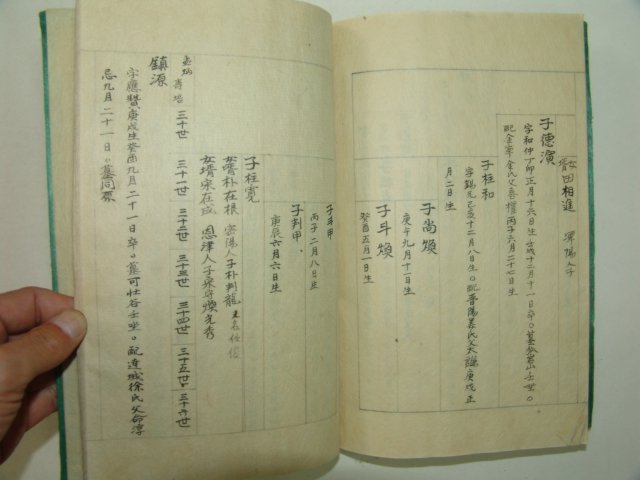 女壻田相進 潭陽人子
子德演
字和仲丁卯正月十六日生。壬戌十二月十一日卒。墓 山壬坐。
配金寧金氏父 丙子六月二十七日生
子柱和
字 己亥十二月八日生。配晋陽姜氏父大謙庚戌正
月二日生
子尚煥
庚午九月十一日生
子斗煥
癸酉五月一日生
子斗甲
丙子二月八日生
子判甲
庚辰六月六日生
子柱寬
女壻朴在根 密陽人子朴判龍
女壻宋在成 恩津人子宋 煥光秀
三十世 三十一世 三十二世 三十三世 三十四世 三十五世 三十六世
鎮源
字應賢庚戌生癸酉九月二十一日卒。墓可壯谷壬坐。配達城徐氏父命淳
忌九月二十一日。墓同原